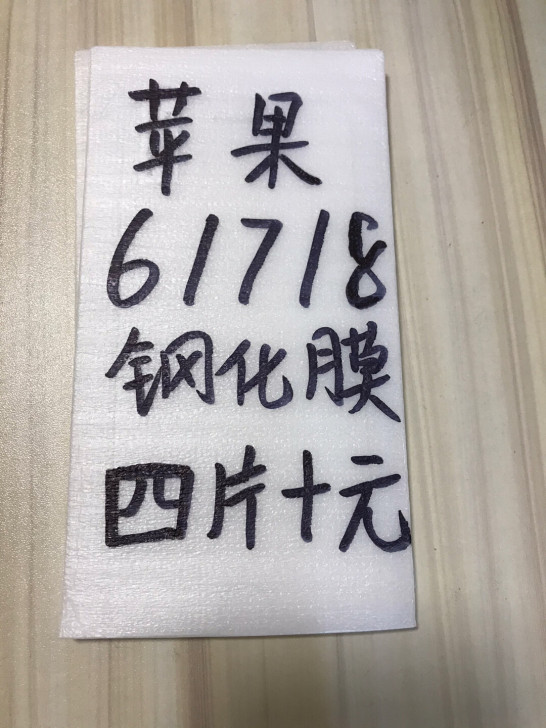 苹果
6/7/8
钢化膜
四片十元